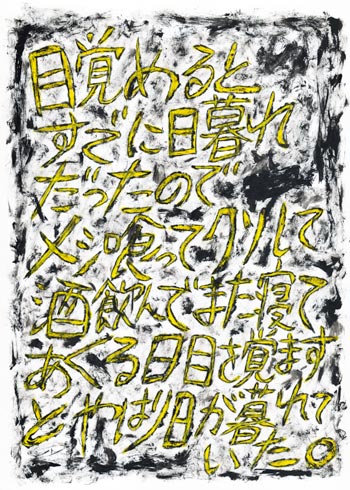 目覚めると
すでに日暮れ
だったので
メシ喰ってクソして
酒飲んでまた寝て
あくる日目を覚ます
とやはり日が暮れて
いた。